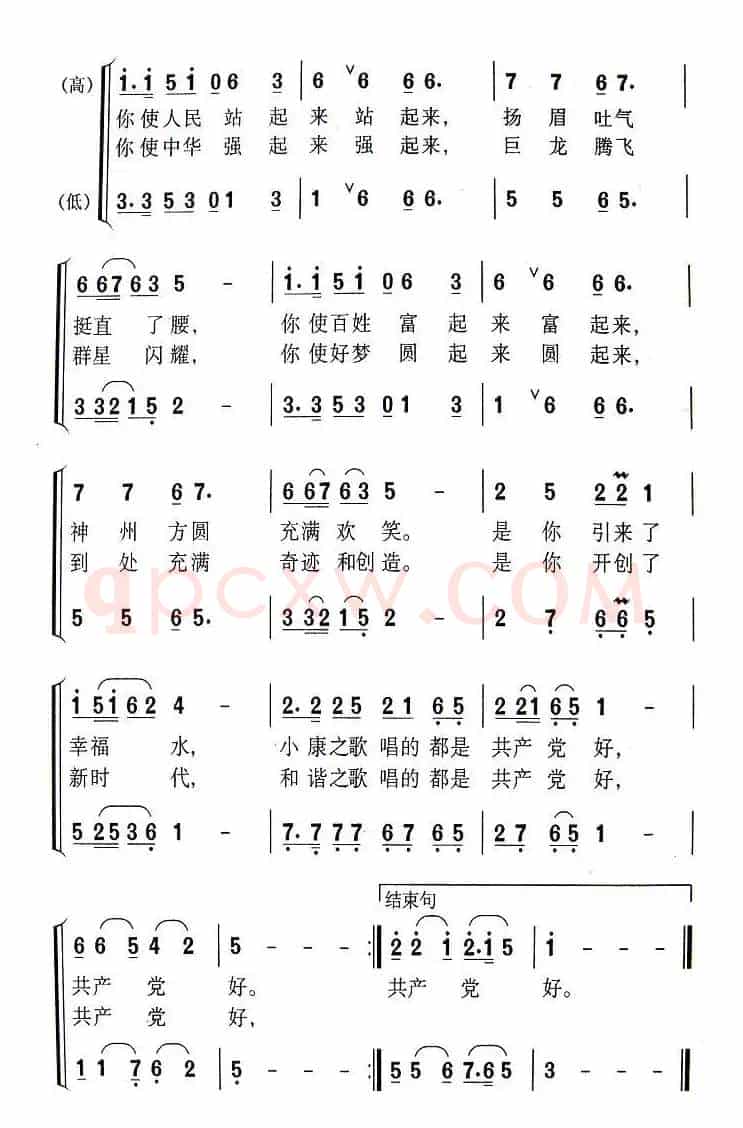 (高) 1.1 5 1 0 6 3 | 6 ∨ 6 6 6. | 7 7 6 7. |
你使人民 站 起 来 站 起来, 扬 眉 吐气
你使中华 强 起 来 强 起来, 巨 龙 腾飞
(低) 3.3 5 3 0 1 3 | 1 ∨ 6 6 6. | 5 5 6 5. |
6 6 7 6 3 5 - | 1.1 5 1 0 6 3 | 6 ∨ 6 6 6. |
挺直 了腰, 你使百姓 富 起 来 富 起来,
群星 闪耀, 你使好梦 圆 起 来 圆 起来,
3 3 2 1 5 2 - | 3.3 5 3 0 1 3 | 1 ∨ 6 6 6. |
7 7 6 7. | 6 6 7 6 3 5 - | 2 5 2 2 1 |
神 州 方圆 充满 欢 笑。 是 你 引来了
到 处 充满 奇迹 和创 造。 是 你 开创了
qpcxw.COM
5 5 6 5. | 3 3 2 1 5 2 - | 2 7 6 6 5 |
1 5 1 6 2 4 - | 2.2 2 5 2 1 6 5 | 2 2 1 6 5 1 - |
幸福 水, 小康之歌 唱的 都是 共产 党 好,
新时 代, 和谐之歌 唱的 都是 共产 党 好,
5 2 5 3 6 1 - | 7.7 7 7 6 7 6 5 | 2 7 6 5 1 - |
结束句
6 6 5 4 2 | 5 - - - :‖ 2 2 1 2.1 5 | 1 - - - ‖
共产 党 好。 共产 党 好。
共产 党 好,
1 1 7 6 2 | 5 - - - :‖ 5 5 6 7.6 5 | 3 - - - ‖